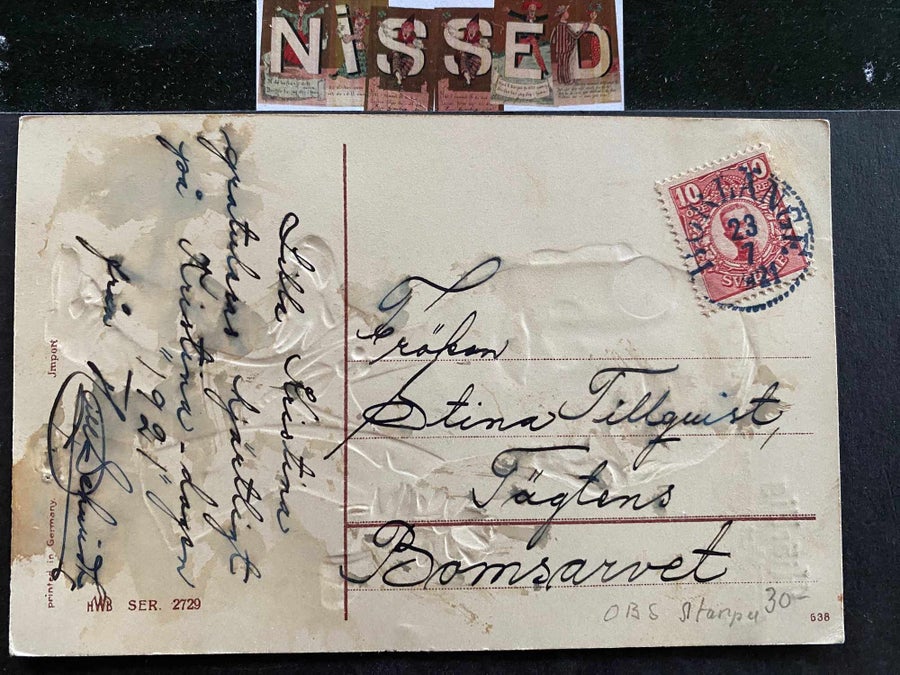 NISSED
10 10
BORLÄNGE
23
7
21
SVERIGE
Lilla Kristina
gratuleras hjärtligt
på Kristina-dagen
"1921"
från
Fröken
Stina Tillquist,
Tägtens
Bomsarvet
Jmport
printed in Germany.
HWB SER. 2729
OBS Stämpel 30-
638